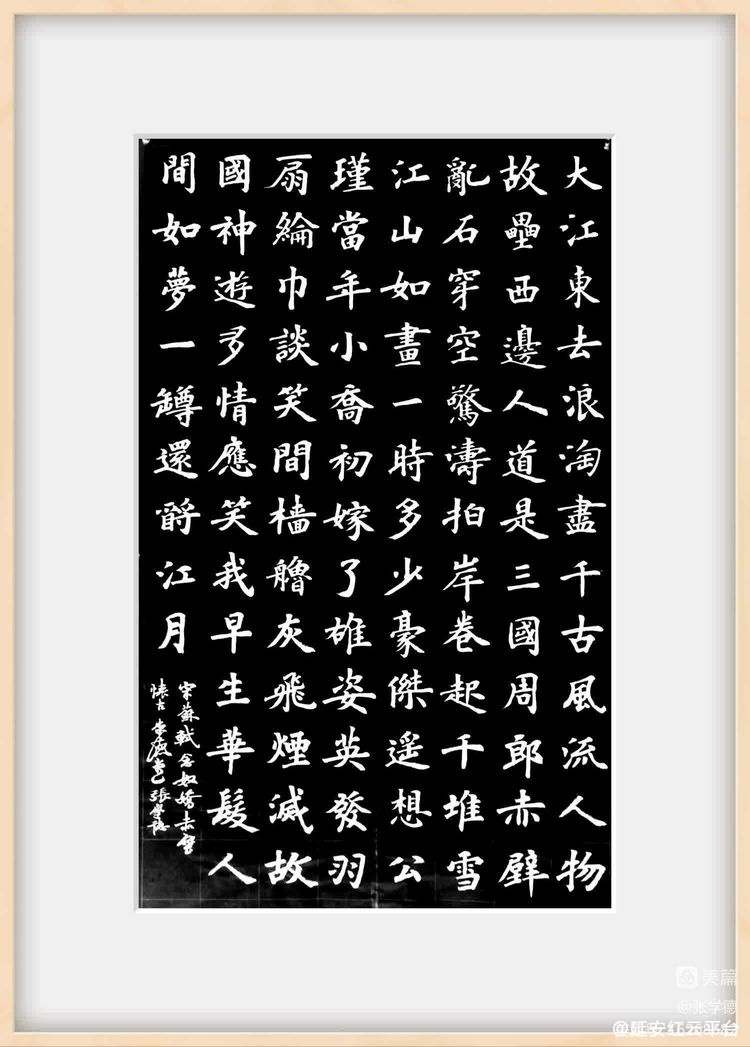 大江東去浪淘盡千古風流人物
故壘西邊人道是三國周郎赤壁
亂石穿空驚濤拍岸卷起千堆雪
江山如畫一時多少豪傑遥想公
瑾當年小喬初嫁了雄姿英發羽
扇綸巾談笑間檣艣灰飛煙滅故
國神遊多情應笑我早生華髮人
間如夢一罇還酹江月
宋蘇軾念奴嬌赤壁
懷古 張學德
美篇
@张学德
@延安红云平台